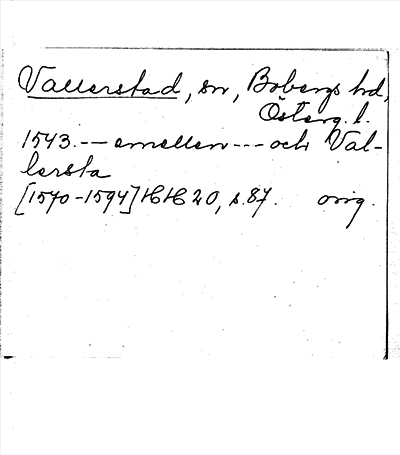 Vallerstad, sn, Bobergs hd,
Österg. l.
1543. -- emellan --- och Val-
lersta
[1570-1594] HH 20, s. 87. orig.